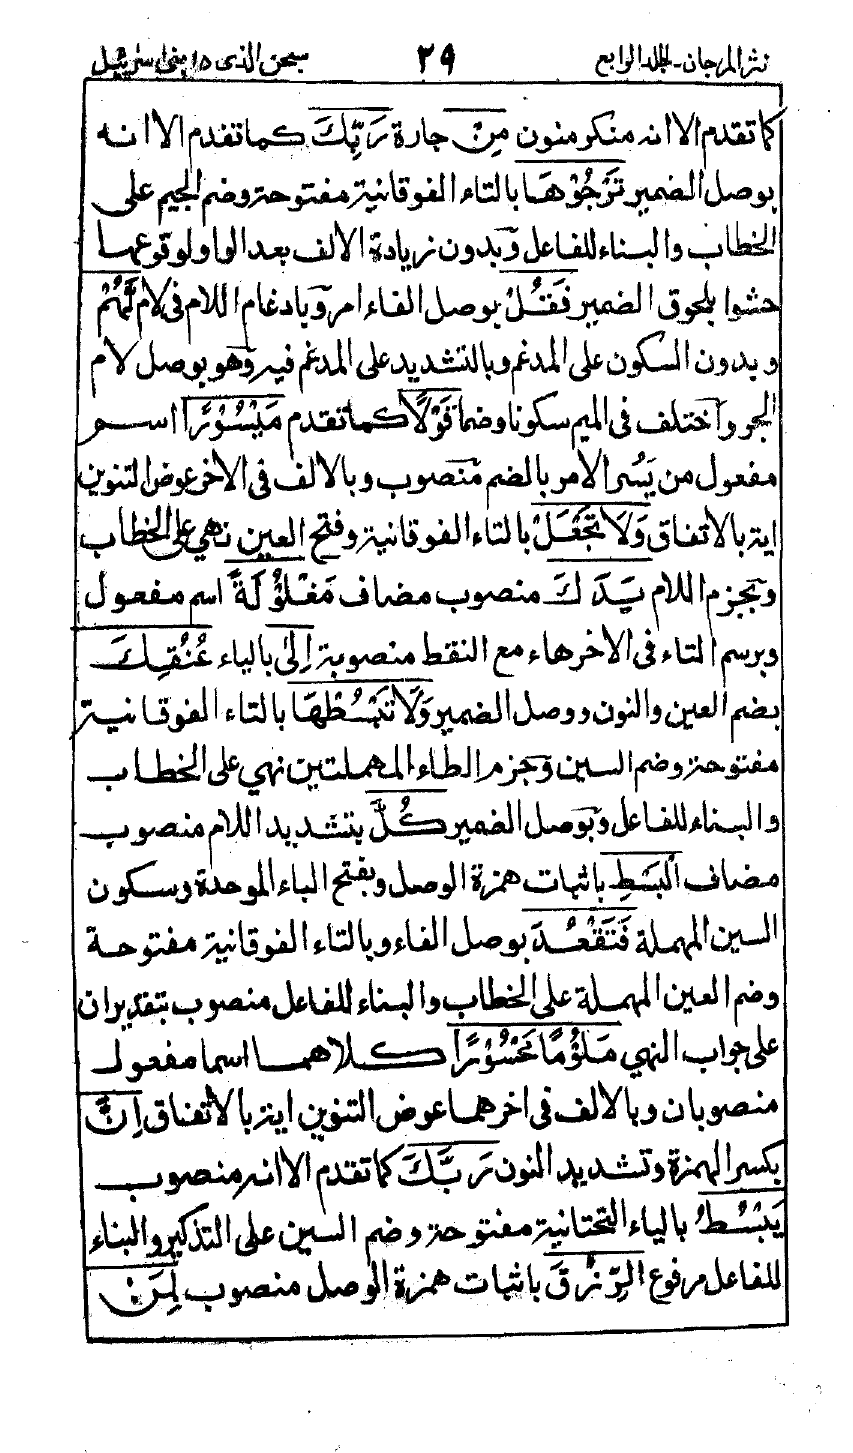 نثر المرجان - الجلد الرابع ٢٩ سبحن الذى ١٥ بنى اسرئيل
كما تقدم الا انه منكر منون مِنْ جارة رَبِّكَ كما تقدم الا انه
بوصل الضمير تَرْجُوْهَا بالتاء الفوقانية مفتوحة وضم الجيم على
الخطاب والبناء للفاعل وبدون زيادة الالف بعد الواو لوقوعها
حشوا بلحوق الضمير فَقُلْ بوصل الفاء امر وبادغام اللام فى لام لَّهُمْ
وبدون السكون على المدغم وبالتشديد على المدغم فيه وهو بوصل لام
الجر واختلف فى الميم سكونا وضما قَوْلًا كما تقدم مَيْسُوْرًا اسم
مفعول من يَسُر الامر بالضم منصوب وبالالف فى الاخر عوض التنوين
اية بالاتفاق وَلَا تَجْعَلْ بالتاء الفوقانية وفتح العين نهي على الخطاب
وبجزم اللام يَدَكَ منصوب مضاف مَغْلُوْلَةً اسم مفعول
وبرسم التاء فى الاخر هاء مع النقط منصوبة اِلىٰ بالياء عُنُقِكَ
بضم العين والنون ووصل الضمير وَلَا تَبْسُطْهَا بالتاء الفوقانية
مفتوحة وضم السين وجزم الطاء المهملتين نهي على الخطاب
والبناء للفاعل وبوصل الضمير كُلَّ بتشديد اللام منصوب
مضاف الْبَسْطِ باثبات همزة الوصل وبفتح الباء الموحدة وسكون
السين المهملة فَتَقْعُدَ بوصل الفاء وبالتاء الفوقانية مفتوحة
وضم العين المهملة على الخطاب والبناء للفاعل منصوب بتقدير ان
على جواب النهي مَلُوْمًا مَحْسُوْرًا كلاهما اسما مفعول
منصوبان وبالالف فى اخرهما عوض التنوين اية بالاتفاق اِنَّ
بكسر الهمزة وتشديد النون رَبَّكَ كما تقدم الا انه منصوب
يَبْسُطُ بالياء التحتانية مفتوحة وضم السين على التذكير والبناء
للفاعل مرفوع الرِّزْقَ باثبات همزة الوصل منصوب لِمَنْ